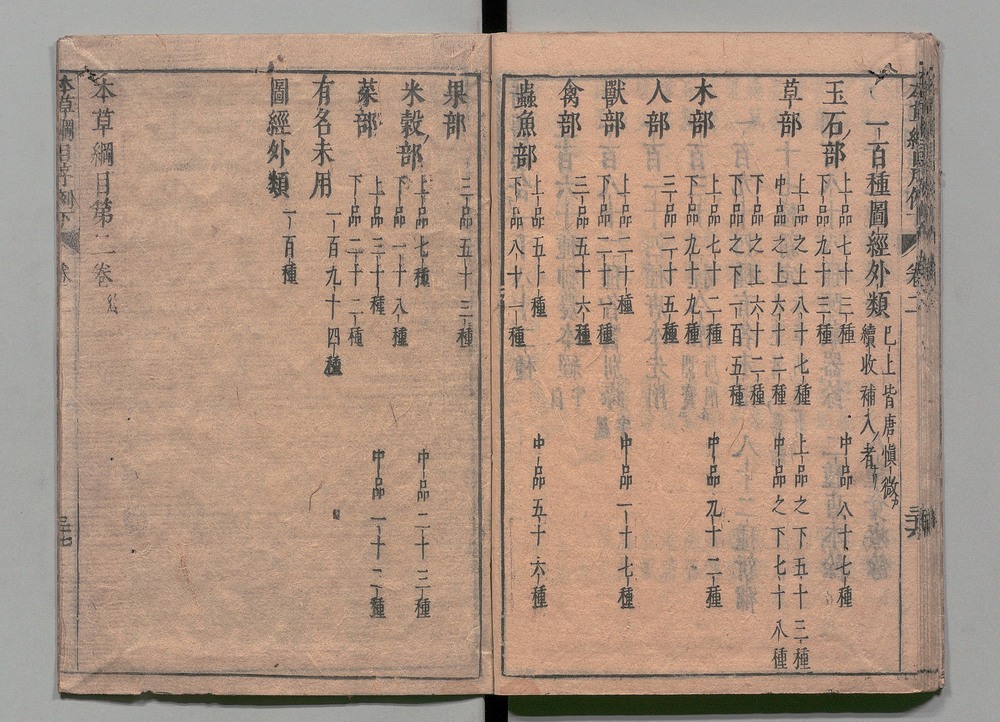 一百種圖經外類 已上皆唐慎微
續收補入者
玉石部 上品七十三種 中品八十七種
下品九十三種
草部 上品之上八十七種 上品之下五十三種
中品之上六十二種 中品之下七十八種
下品之上六十二種
下品之下一百五種
木部 上品七十二種 中品九十二種
下品九十九種
人部 三品二十五種
獸部 上品二十種 中品一十七種
下品二十一種
禽部 三品五十六種
蟲魚部 上品五十種 中品五十六種
下品八十一種
果部 三品五十三種
米穀部 上品七種 中品二十三種
下品一十八種
菜部 上品三十種 中品一十二種
下品二十二種
有名未用 一百九十四種
圖經外類 一百種
本草綱目第二卷終
本草綱目序例下 卷 三十七